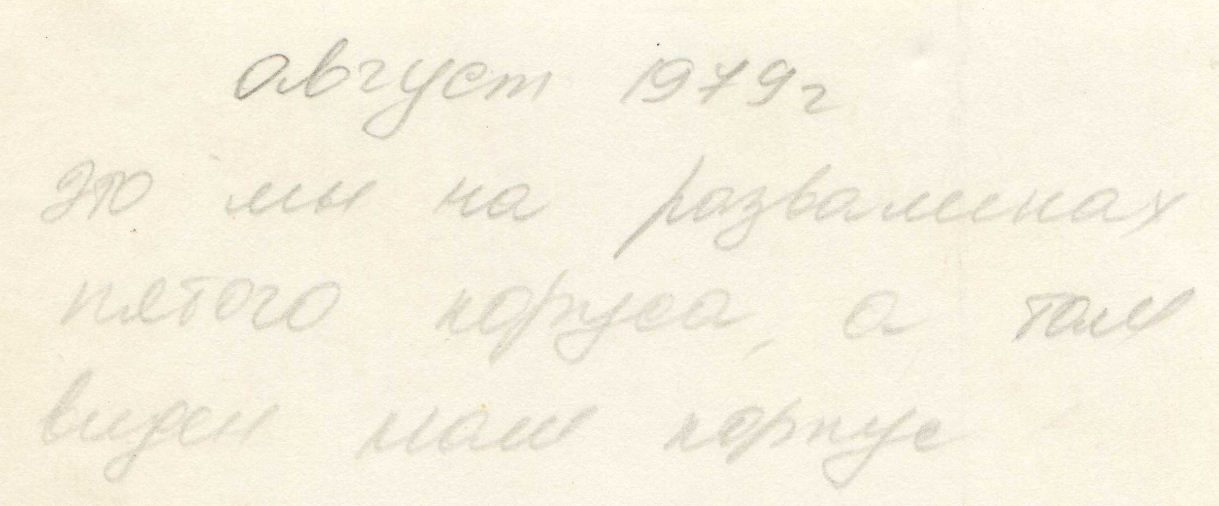 август 1979г
это мы на развалинах
пятого корпуса, а там
виден наш корпус